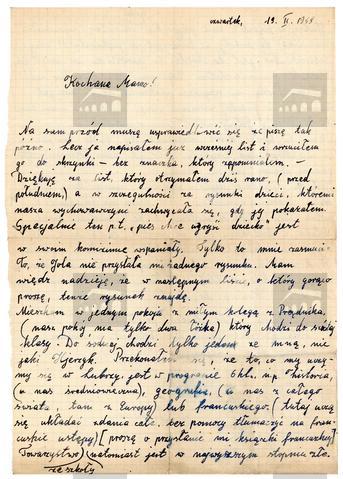 czwartek, 19. II. 1948
Kochana Mamo!
Na sam przód muszę usprawiedliwić się że piszę tak
późno. Lecz ja napisałem już wcześniej list i wrzuciłem
go do skrzynki – bez znaczka, który zapomniałem. –
Dziękuję za list, który otrzymałem dziś rano, (przed
południem,) a w szczególności za rysunki dzieci, któremi
nasza wychowawczyni zachwycała się, gdy jej pokazałem.
Specjalnie ten p.t. „pies chce ugryźć dziecko" jest
w swoim komiźmie wspaniały. Tylko to mnie zasmuca
to, że Jola nie przysłała żadnego rysunku. Mam
więc nadzieję, że w następnym liście, o który gorąco
proszę, tenże rysunek znajdę.
Mieszkam w jednym pokoju z miłym kolegą z
(nasz pokój ma tylko dwa łóżka) który chodzi do siódmej
klasy. Do szóstej chodzi tylko jeden ze mną, nie
jaki Przekonałem się, że to, co my uczy-
my się w jest w programie 6 kl. np. historja,
(u nas średniowieczna), geografia, (u nas z całego
świata, tam z Europy) lub francuskiego. (tutaj uczą
się układać zdania całe, bez pomocy tłumaczyć na fran-
cuskie ustępy) [proszę o przysłanie mi książki francuskiej]
Towarzystwo natomiast jest w najwyższym stopniu złe.
ze szkoły